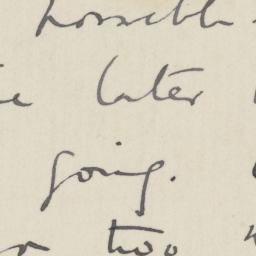 possible
later
going.
two